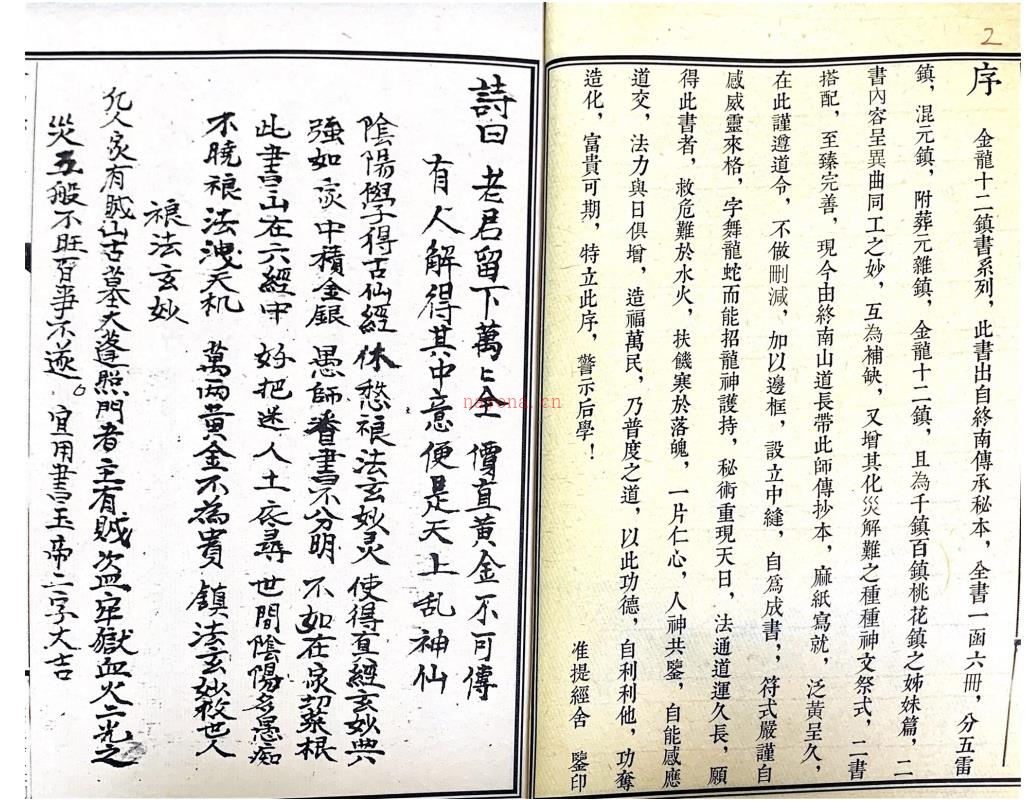 2
序
金龍十二鎮書系列，此書出自終南傳承秘本，全書一函六冊，分五雷
鎮，混元鎮，附葬元雜鎮，金龍十二鎮，且為千鎮百鎮桃花鎮之姊妹篇，二
書內容呈異曲同工之妙，互為補缺，又增其化災解難之種種神文祭式，二書
搭配，至臻完善，現今由終南山道長帶此師傳抄本，麻紙寫就，泛黃呈久，
在此謹遵道令，不做刪減，加以邊框，設立中縫，自爲成書，，符式嚴謹自
感威靈來格，字舞龍蛇而能招龍神護持，秘術重現天日，法通道運久長，願
得此書者，救危難於水火，扶饑寒於落魄，一片仁心，人神共鑒，自能感應
道交，法力與日俱增，造福萬民，乃普度之道，以此功德，自利利他，功奪
造化，富貴可期，特立此序，警示后學！
准提經舍 鑒印
詩曰 老君留下萬 價直黃金不可傳
有人解得其中意便是天上乱神仙
陰陽學子得古仙經 休愁 法玄妙灵 使得直經玄妙典
強如家中積金銀 愚師看書不分明 不如在家 根
此書山在六經中 好把迷人土底尋 世間陰陽多愚痴
不曉 法洩天机 萬両黃金不為貴 鎮法玄妙救世人
法玄妙
凡人家有賊山古墓天蓬照門者主有賊盗牢獄血火之光之
災五般不旺百事不遂。宜用書玉帝二字大吉
nayona.cn